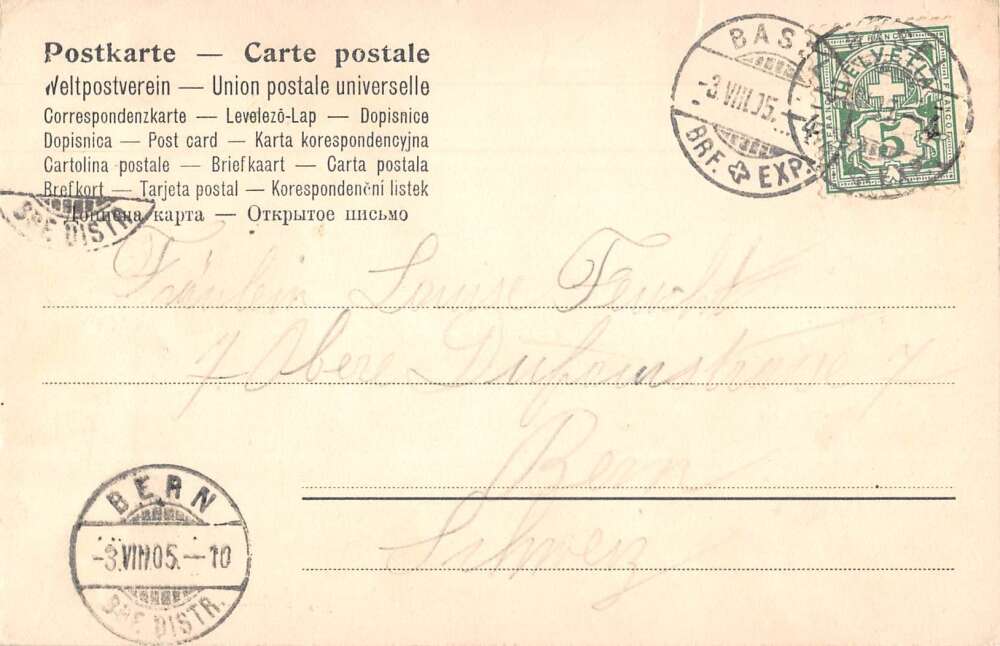 Postkarte — Carte postale
Weltpostverein — Union postale universelle
Correspondenzkarte — Levelező-Lap — Dopisnice
Dopisnica — Post card — Karta korespondencyjna
Cartolina postale — Briefkaart — Carta postala
Brefkort — Tarjeta postal — Korespondenční listek
карта — Открытое письмо
BRF. DISTR.
BAS
-3.VIII.05.
BRF. EXP.
FRANCO
HELVETIA
5
Fräulein Louise Feucht
7 Obere Dufourstrasse 7
Bern
Schweiz
BERN
-3.VIII.05.-10
BRF. DISTR.